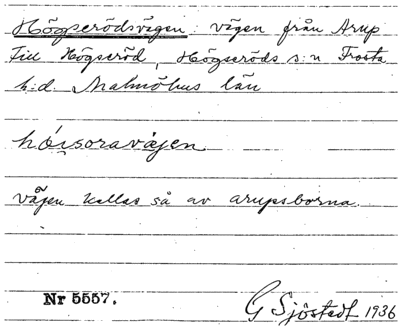 Högserödsvägen: vägen från Arup
till Högseröd, Högseröds s:n Frosta
h:d. Malmöhus län
hói̯soravä́jen
vägen kallas så av arupsborna.
Nr 5557.
G Sjöstedt 1936